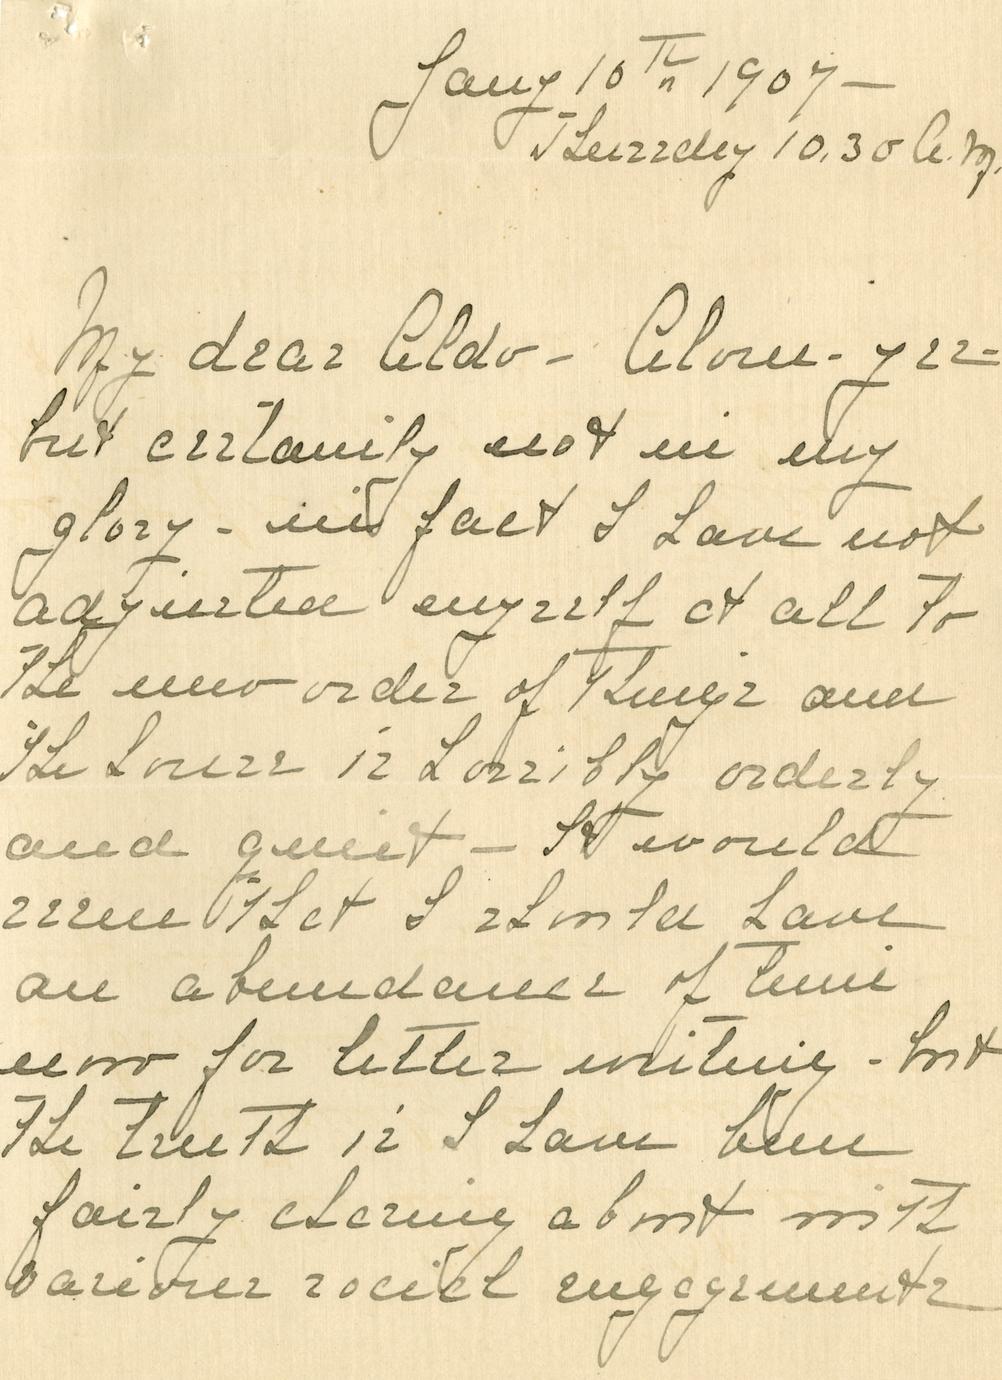 Jany 10th 1907—
Thursday 10.30 A.M.
My dear Aldo- Alone- yes-
but certainly not in my
glory - in fact I have not
adjusted myself at all to
the new order of things and
the house is horribly orderly
and quiet — It would
seem that I should have
an abundance of time
now for letter writing - but
the truth is I have been
fairly chasing about with
various social engagements